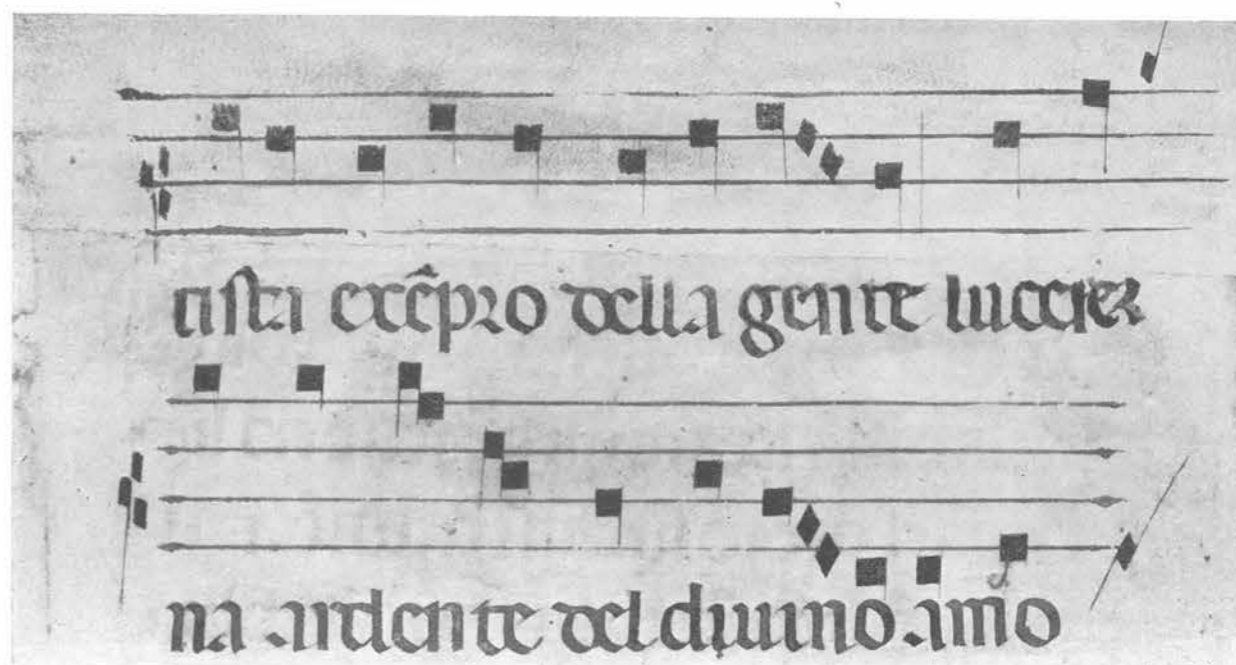 tista exẽpro della gente luccier
na ardente del diuino amo